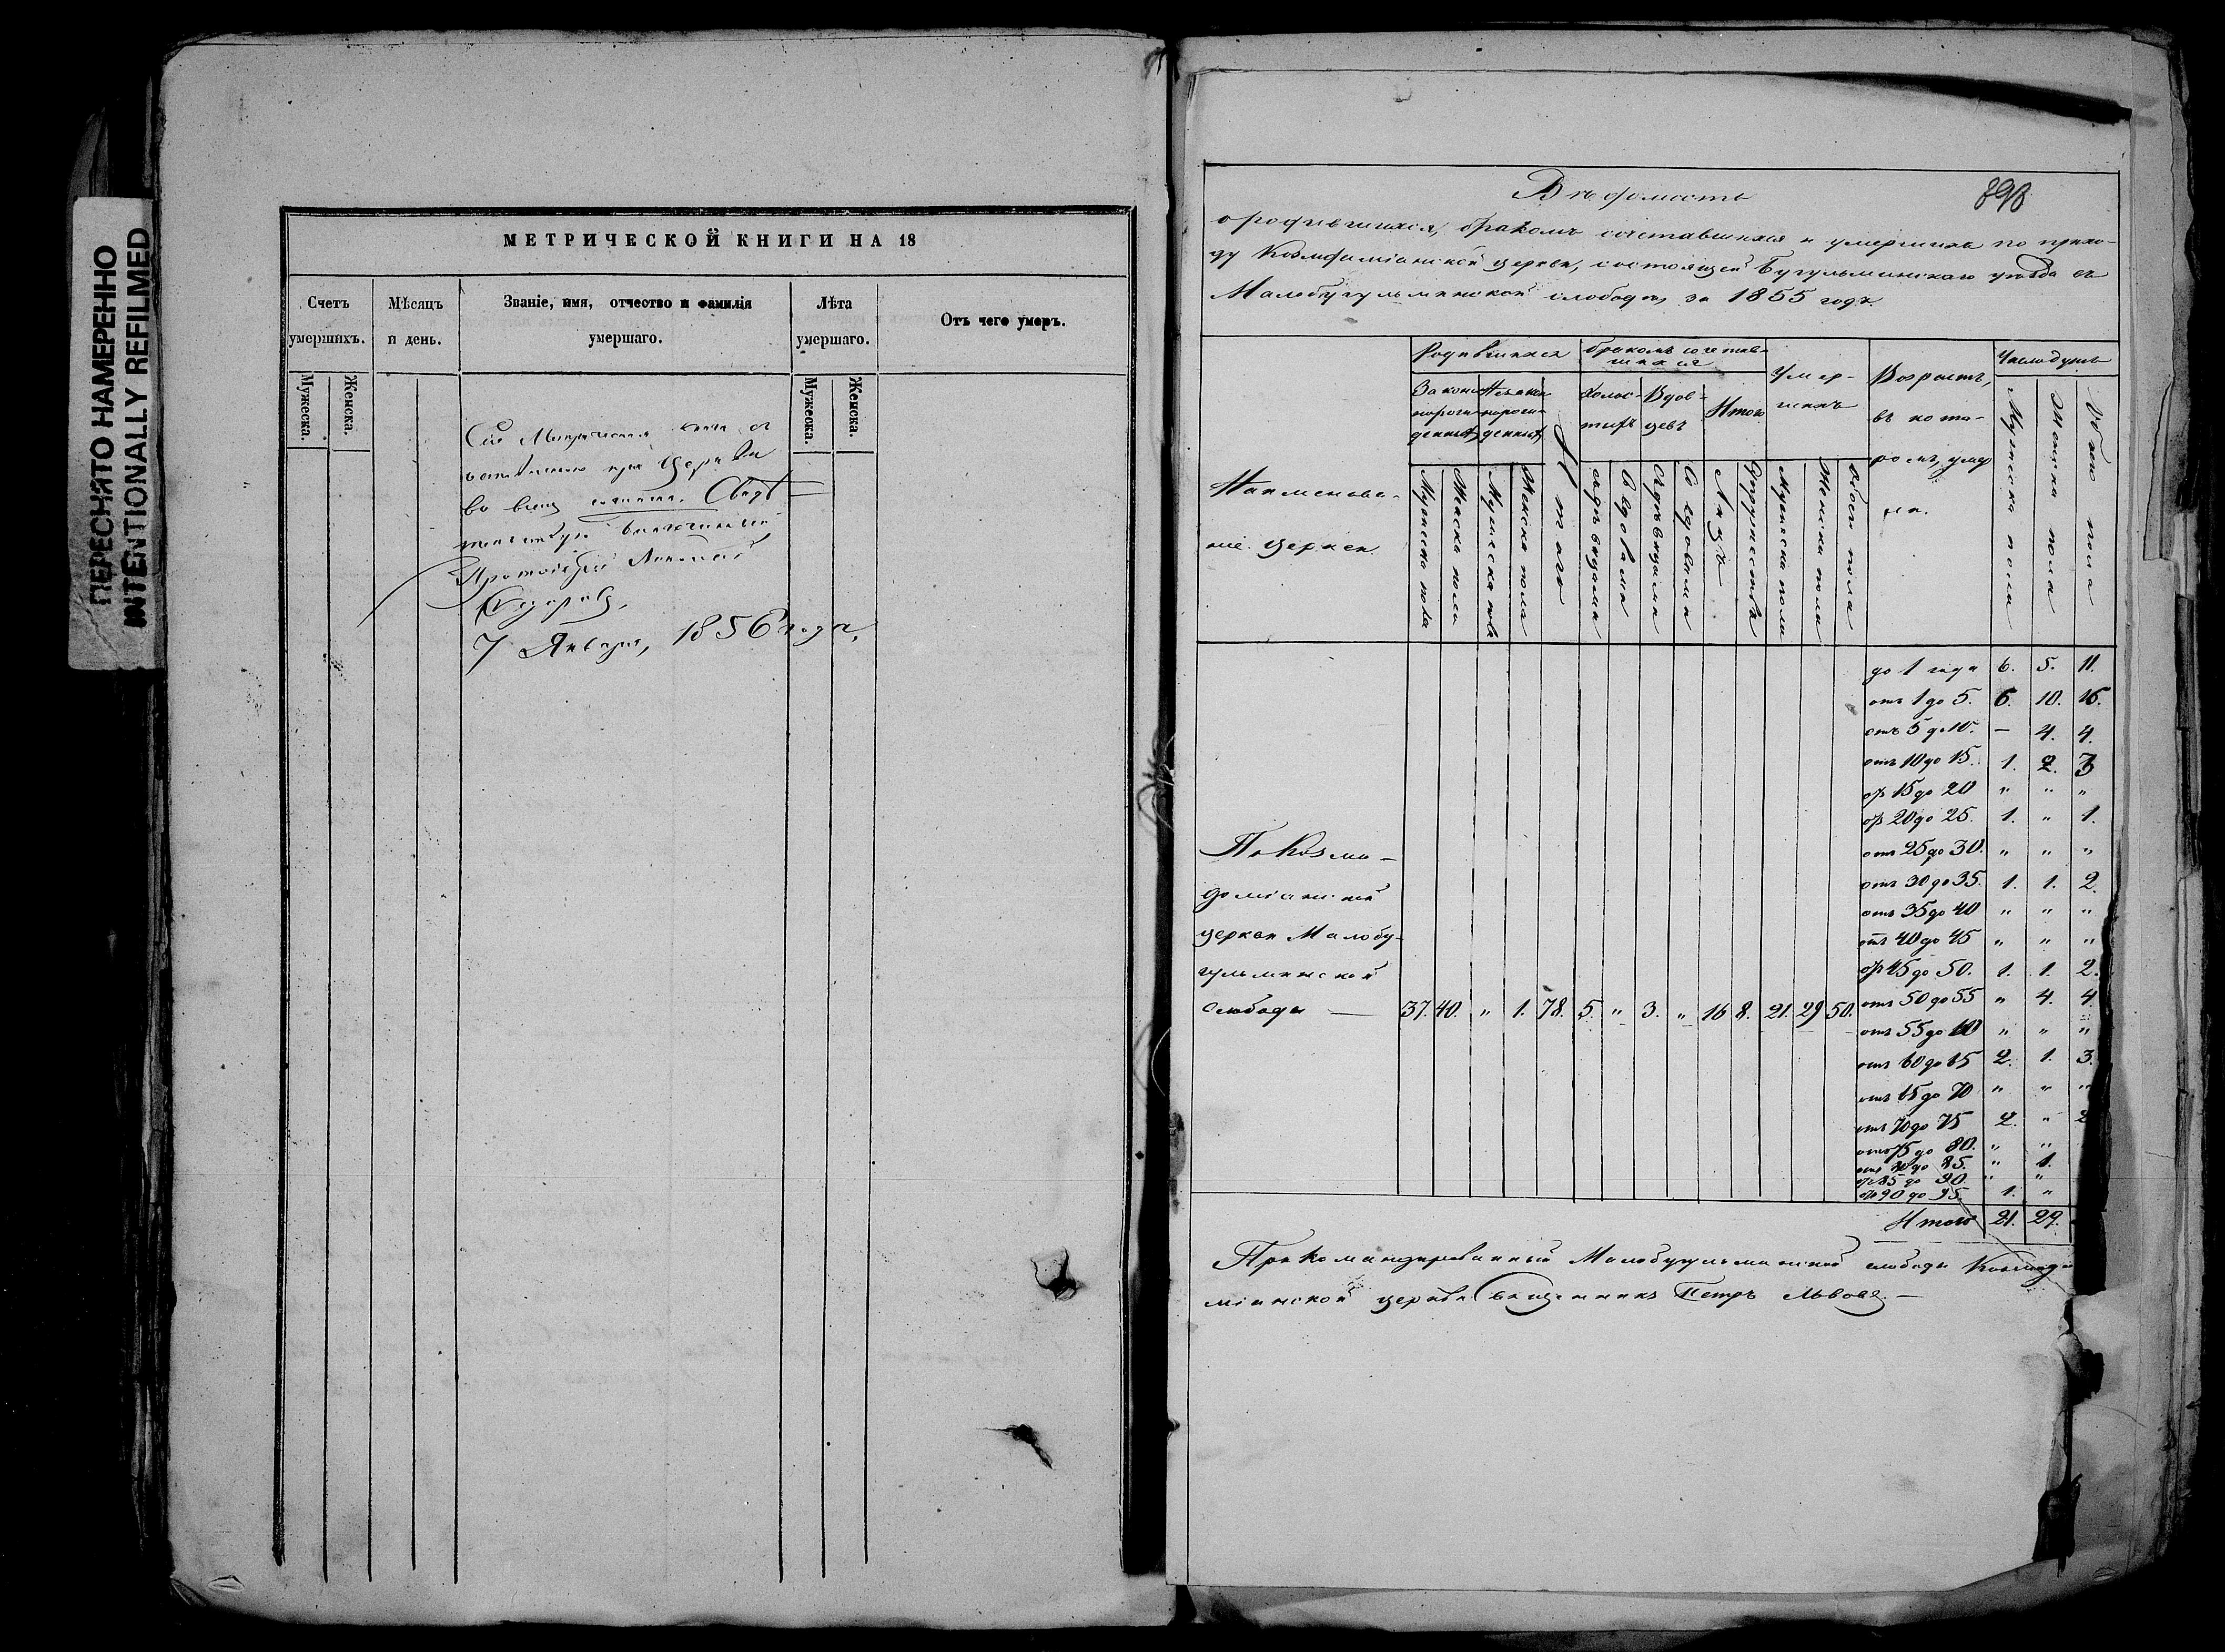 ПЕРЕСНЯТО НАМЕРЕННО
INTENTIONALLY REFILMED
МЕТРИЧЕСКОЙ КНИГИ НА 18
Счетъ умершихъ.
Мѣсяцъ и день.
Званіе, имя, отчество и фамилія умершаго.
Лѣта умершаго.
Отъ чего умеръ.
Мужеска. Женска. Мужеска. Женска.
Сія Метрическая книга
при Церкви
во всемъ
Благочинный
Протоіерей Николай
7 Января, 1856 года,
Вѣдомость
о родившихся, бракомъ сочетавшихся и умершихъ по прихо-
ду Козмодаміанской церкви, состоящей Бугульминскаго уѣзда въ
Малобугульминской слободѣ, за 1855 годъ.
Наименова-
ніе церкви
Родившихся
Законнорожденныхъ
Незаконнорожденныхъ
Мужеска пола
Женска пола
Мужеска пола
Женска пола
Итого
Бракомъ сочетав-
шихся
Холос-
тыхъ
Вдов-
цевъ
Итого
Съ дѣвицами
Со вдовами
Съ дѣвицами
Со вдовами
Лицъ
Супружествъ
Умер-
шихъ
Мужеска пола
Женска пола
Обоего пола
Возрастъ,
въ кото-
ромъ умер
ли.
Число душъ
Мужеска пола
Женска пола
Обоего пола
до 1 года 6. 5. 11.
отъ 1 до 5. 6. 10. 16.
отъ 5 до 10. — 4. 4.
отъ 10 до 15. 1. 2. 3
отъ 15 до 20 " " "
отъ 20 до 25. 1. " 1.
отъ 25 до 30. " " "
отъ 30 до 35. 1. 1. 2.
отъ 35 до 40 " " "
отъ 40 до 45 " " "
отъ 45 до 50. 1. 1. 2.
отъ 50 до 55 " 4. 4.
отъ 55 до 60 " " "
отъ 60 до 65 2. 1. 3.
отъ 65 до 70 " " "
отъ 70 до 75 2. " 2
отъ 75 до 80. " "
отъ 80 до 85. " 1.
отъ 85 до 90. " "
отъ 90 до 95. 1. "
Итого 21. 29.
По Козмо-
доміанской
церкви Малобу-
гульминской
слободы — 37. 40. " 1. 78. 5. " 3. " 16 8. 21. 29 50.
Прикомандированный Малобугульминской слободы Козмода
міанской церкви Священникъ Петръ Львовъ. —